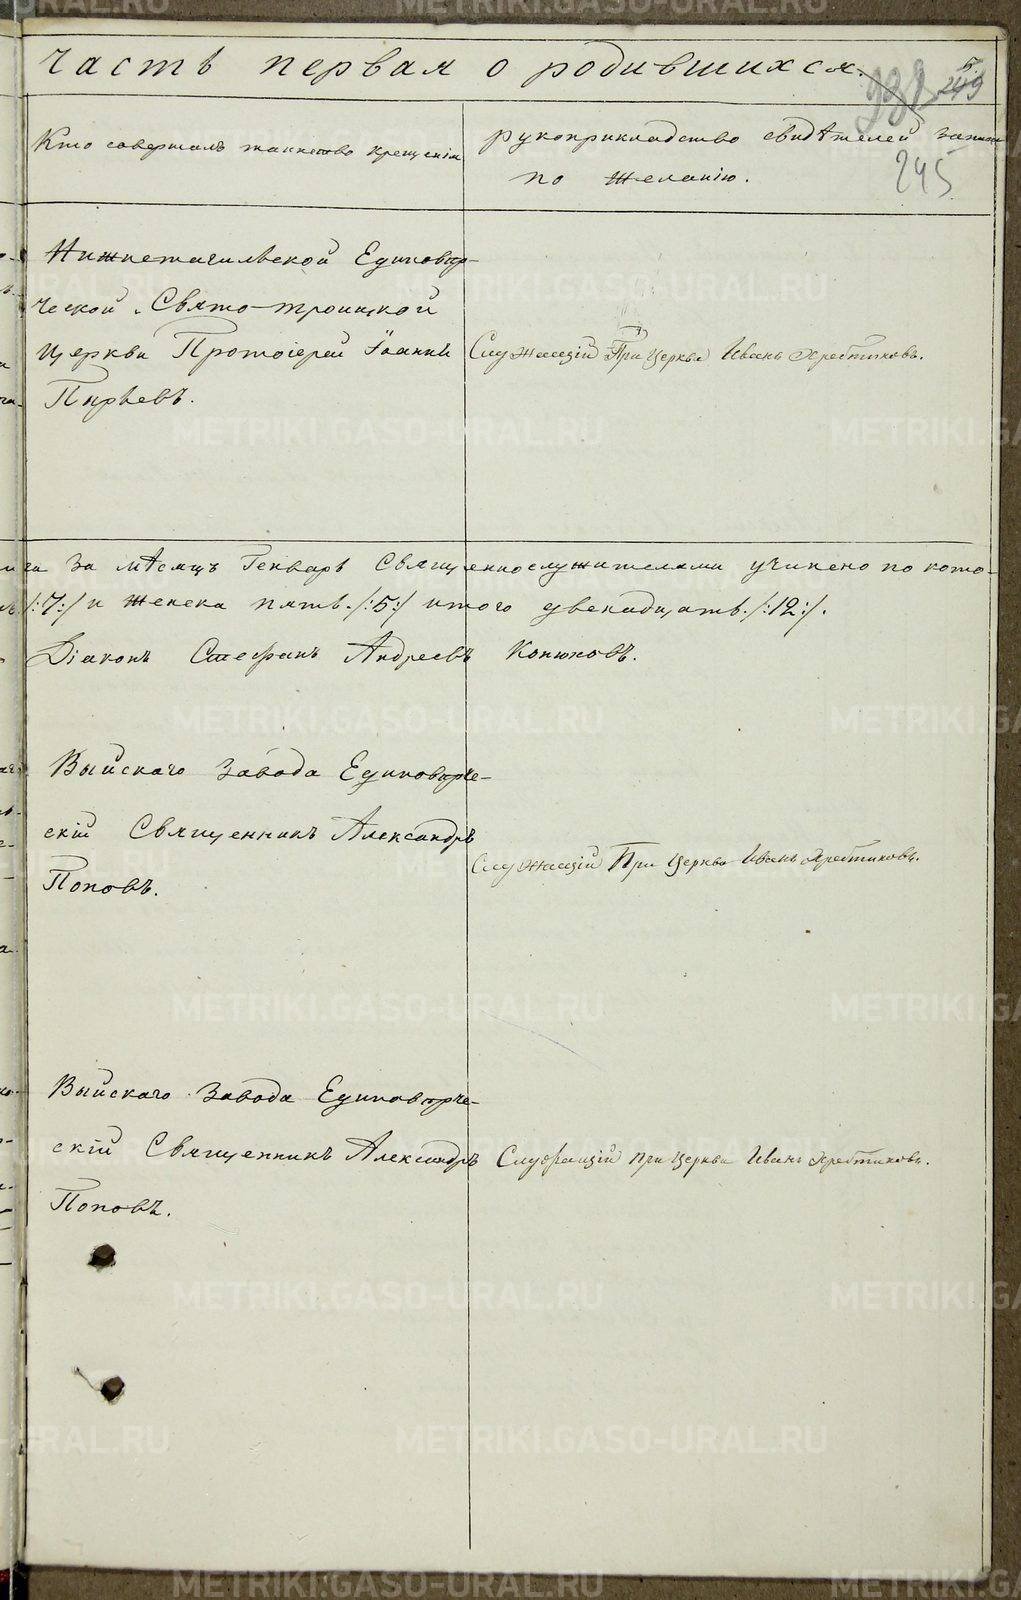 часть первая о родившихся.
5.
249
238
245
Кто совершалъ таинство крещенія
рукоприкладство свидѣтелей записи
по желанію.
Нижнетагильской Единовѣр-
ческой Свято-троицкой
церкви Протоіерей Іоаннъ
Пырьевъ.
Служащій При церкве Иванъ Хребтиковъ.
за мѣсяцъ Генварь Священнослужителями учинено по кото-
/:7:/ и женска пять /:5:/ итого двенадцать /:12:/.
Діаконъ Стефанъ Андреевъ Конюховъ.
Выйскаго завода Единовѣрче-
скій Священникъ Александръ
Поповъ.
Служащій При Церкве Иванъ Хребтиковъ.
Выйскаго завода Единовѣрче-
скій Священникъ Александръ
Поповъ.
Служащій при Церкви Иванъ Хребтиковъ.
METRIKI.GASO-URAL.RU